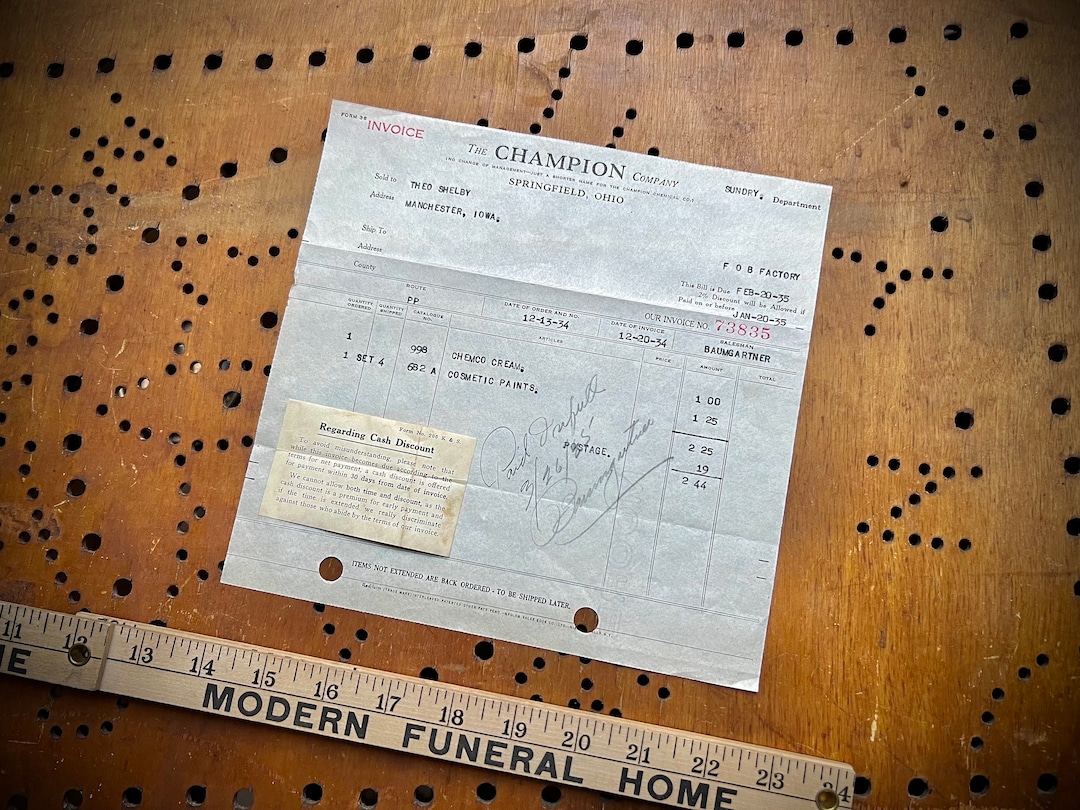 FORM 38 INVOICE
THE CHAMPION COMPANY
(NO CHANGE OF MANAGEMENT—JUST A SHORTER NAME FOR THE CHAMPION CHEMICAL CO.)
SPRINGFIELD, OHIO
SUNDRY. Department
Sold to THEO SHELBY
Address MANCHESTER, IOWA.
Ship To
Address
County
F O B FACTORY
This Bill is Due FEB-20-35
2% Discount will be Allowed if
Paid on or before JAN-20-35
OUR INVOICE NO. 73835
ROUTE
PP
DATE OF ORDER AND NO.
12-13-34
DATE OF INVOICE
12-20-34
SALESMAN
BAUMGARTNER
QUANTITY ORDERED QUANTITY SHIPPED CATALOGUE NO. ARTICLES PRICE AMOUNT TOTAL
1 998 CHEMCO CREAM. 1 00
1 SET 4 682 A COSMETIC PAINTS. 1 25
2 25
POSTAGE. 19
2 44
Paid in full
Baumgartner
Form No. 200 K & S.
Regarding Cash Discount
To avoid misunderstanding, please note that
while this invoice becomes due according to the
terms for net payment, a cash discount is offered
for payment within 30 days from date of invoice.
We cannot allow both time and discount, as the
cash discount is a premium for early payment and
if the time is extended we really discriminate
against those who abide by the terms of our invoice.
ITEMS NOT EXTENDED ARE BACK ORDERED - TO BE SHIPPED LATER.
11 12 13 14 15 16 17 18 19 20 21 22 23 24
ME MODERN FUNERAL HOME